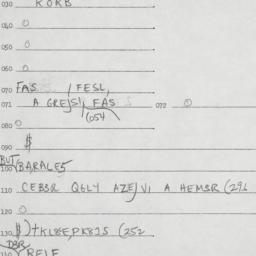 030 KORB
040 0
050 0
060 0
070 FAS / FESL,
071 A GRE/SI, FAS 072 0
(054
080 0
090 $
BUT
100 BARALES
110 CEBSR Q6LY AZE/VI A HEMSR (296
120 0
130 $)+KL8E,PK8JS (252
DBR
140 RELF